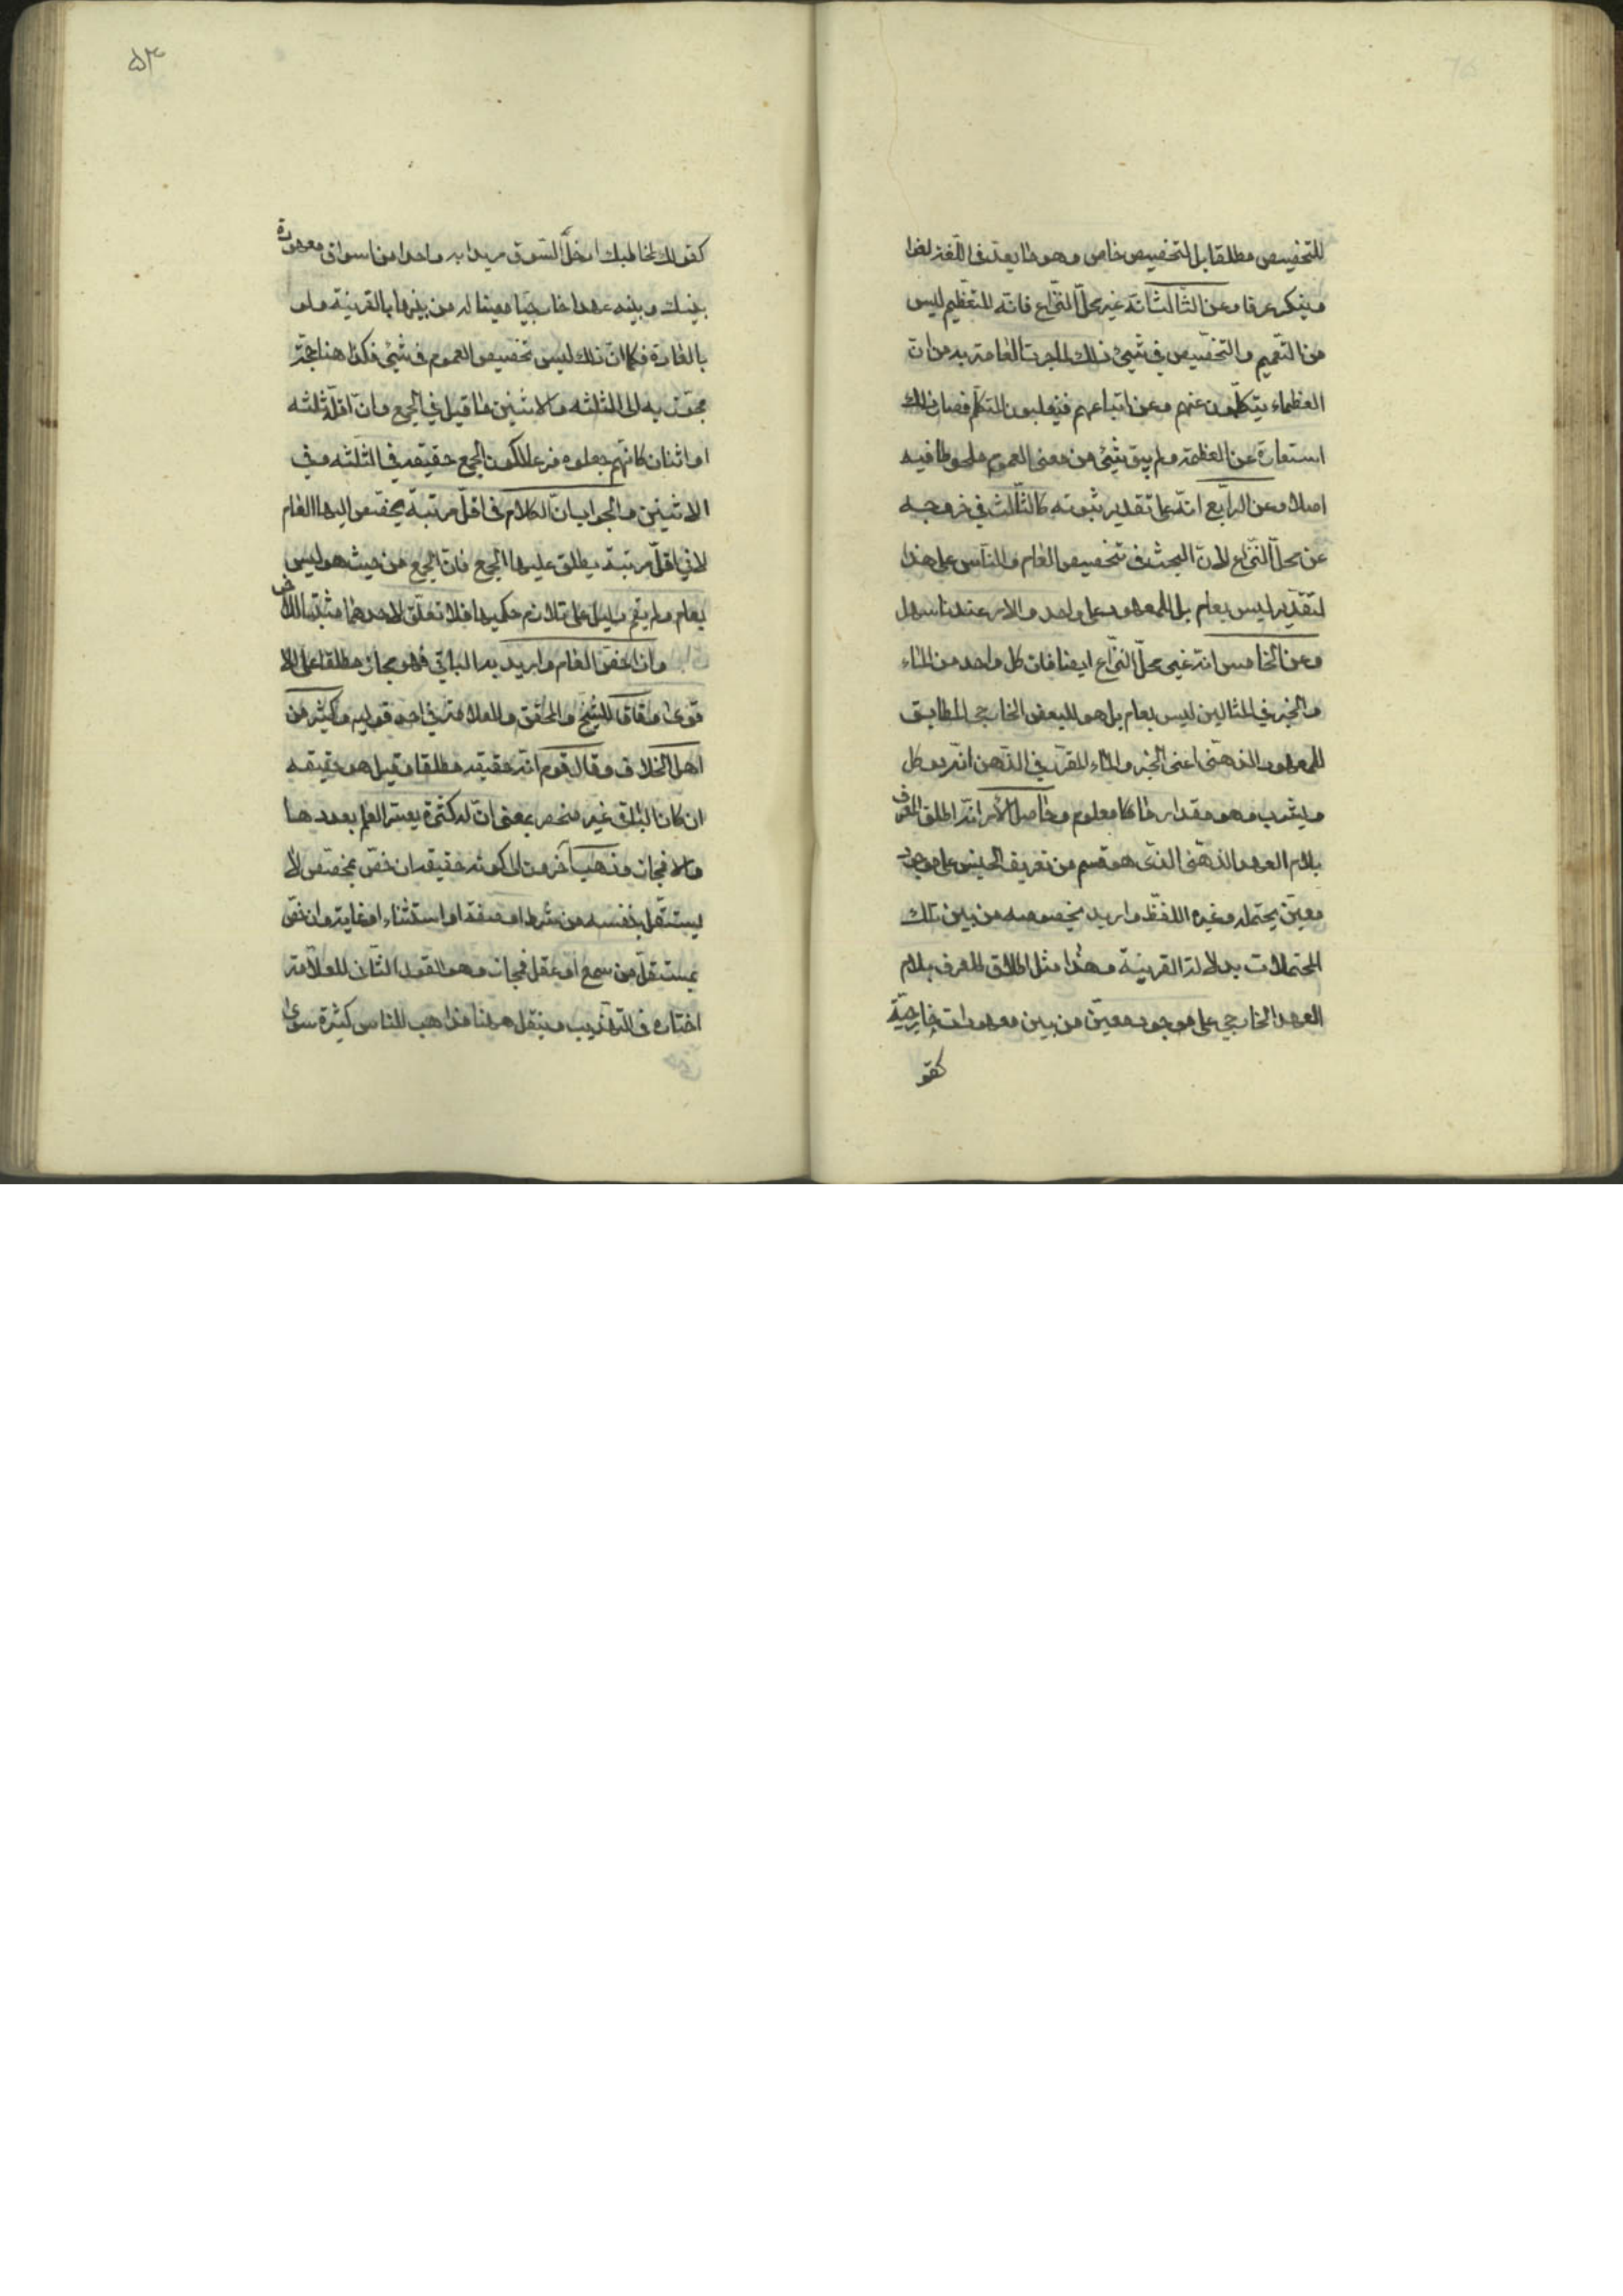 للتخصيص مطلقا بل لتخصيص خاص وهو ما يعد في اللغة لغوا
وينكر عرفا وعن الثالث انه غير محل النزاع فانه للتعظيم ليس
من التعميم والتخصيص في شيئ وذلك لما جرت العادة به من ان
العظماء يتكلمون عنهم وعن اتباعهم فيغلبون المتكلم فصار ذلك
استعارة عن العظمة ولم يبق شيئ من معنى العموم ملحوظا فيه
اصلا وعن الرابع انه على تقدير ثبوته كالثالث في خروجه
عن محل النزاع لان البحث في تخصيص العام والناس على هذا
لتقدير ليس بعام بل للمعهود على واحد والامر عندنا سهل
وعن الخامس انه غير محل النزاع ايضا فان كل واحد من الماء
والخبز في المثالين ليس بعام بل هو للبعض الخارجي المطابق
للمعهود الذهني اعني الخبز والماء المقرر في الذهن انه يوكل
ويشرب وهو مقدار ما كا معلوم وحاصل الامر انه اطلق المعرف
بلام العهد الذهني الذي هو قسم من تعريف الجنس على موجود
معين يحتمله وغيره اللفظ واريد بخصوصه من بين تلك
المحتملات بدلالة القرينة وهذا مثل اطلاق المعرف بلام
العهد الخارجي على موجود معين من بين معهودات خارجية
كقو
۵۳
كقولك لمخاطبك ادخل السوق مريدا به واحدا من اسواق معهودة
بينك وبينه عهدا خارجيا معينا له من بينها بالقرينة ولو
بالعادة فكما ان ذلك ليس تخصيص العموم في شيئ فكذا هنا حجة
مجوزيه الى الثلثه والاثنين ما قيل في الجمع وان اقله ثلثه
او اثنان كانهم جعلوه فرعا لكون الجمع حقيقه في الثلثه وفي
الاثنين والجواب ان الكلام في اقل مرتبة يخصص اليها العام
لا في اقل مرتبة يطلق عليها الجمع فان الجمع من حيث هو ليس
بعام ولم يقم دليل على تلازم حكميها فلا تعلق لاحدهما مثبتا للاخر
واذا خص العام واريد به الباقي فهو مجاز مطلقا على الا
قوى وفاقا للشيخ والمحقق والعلامة في احد قوليه وكثير من
اهل الخلاف وقال قوم انه حقيقه مطلقا وقيل هو حقيقه
ان كان الباقي غير منحصر بمعنى ان له كثرة يعسر العلم بعددها
والا فمجاز وذهب آخرون الى كونه حقيقه ان خص بمخصص لا
يستقل بنفسه من شرط او صفة او استثناء او غاية وان خص
بمستقل من سمع او عقل فمجاز وهو القول الثاني للعلامة
اختاره في التهذيب وينقل هيهنا مذاهب للناس كثيرة سوى